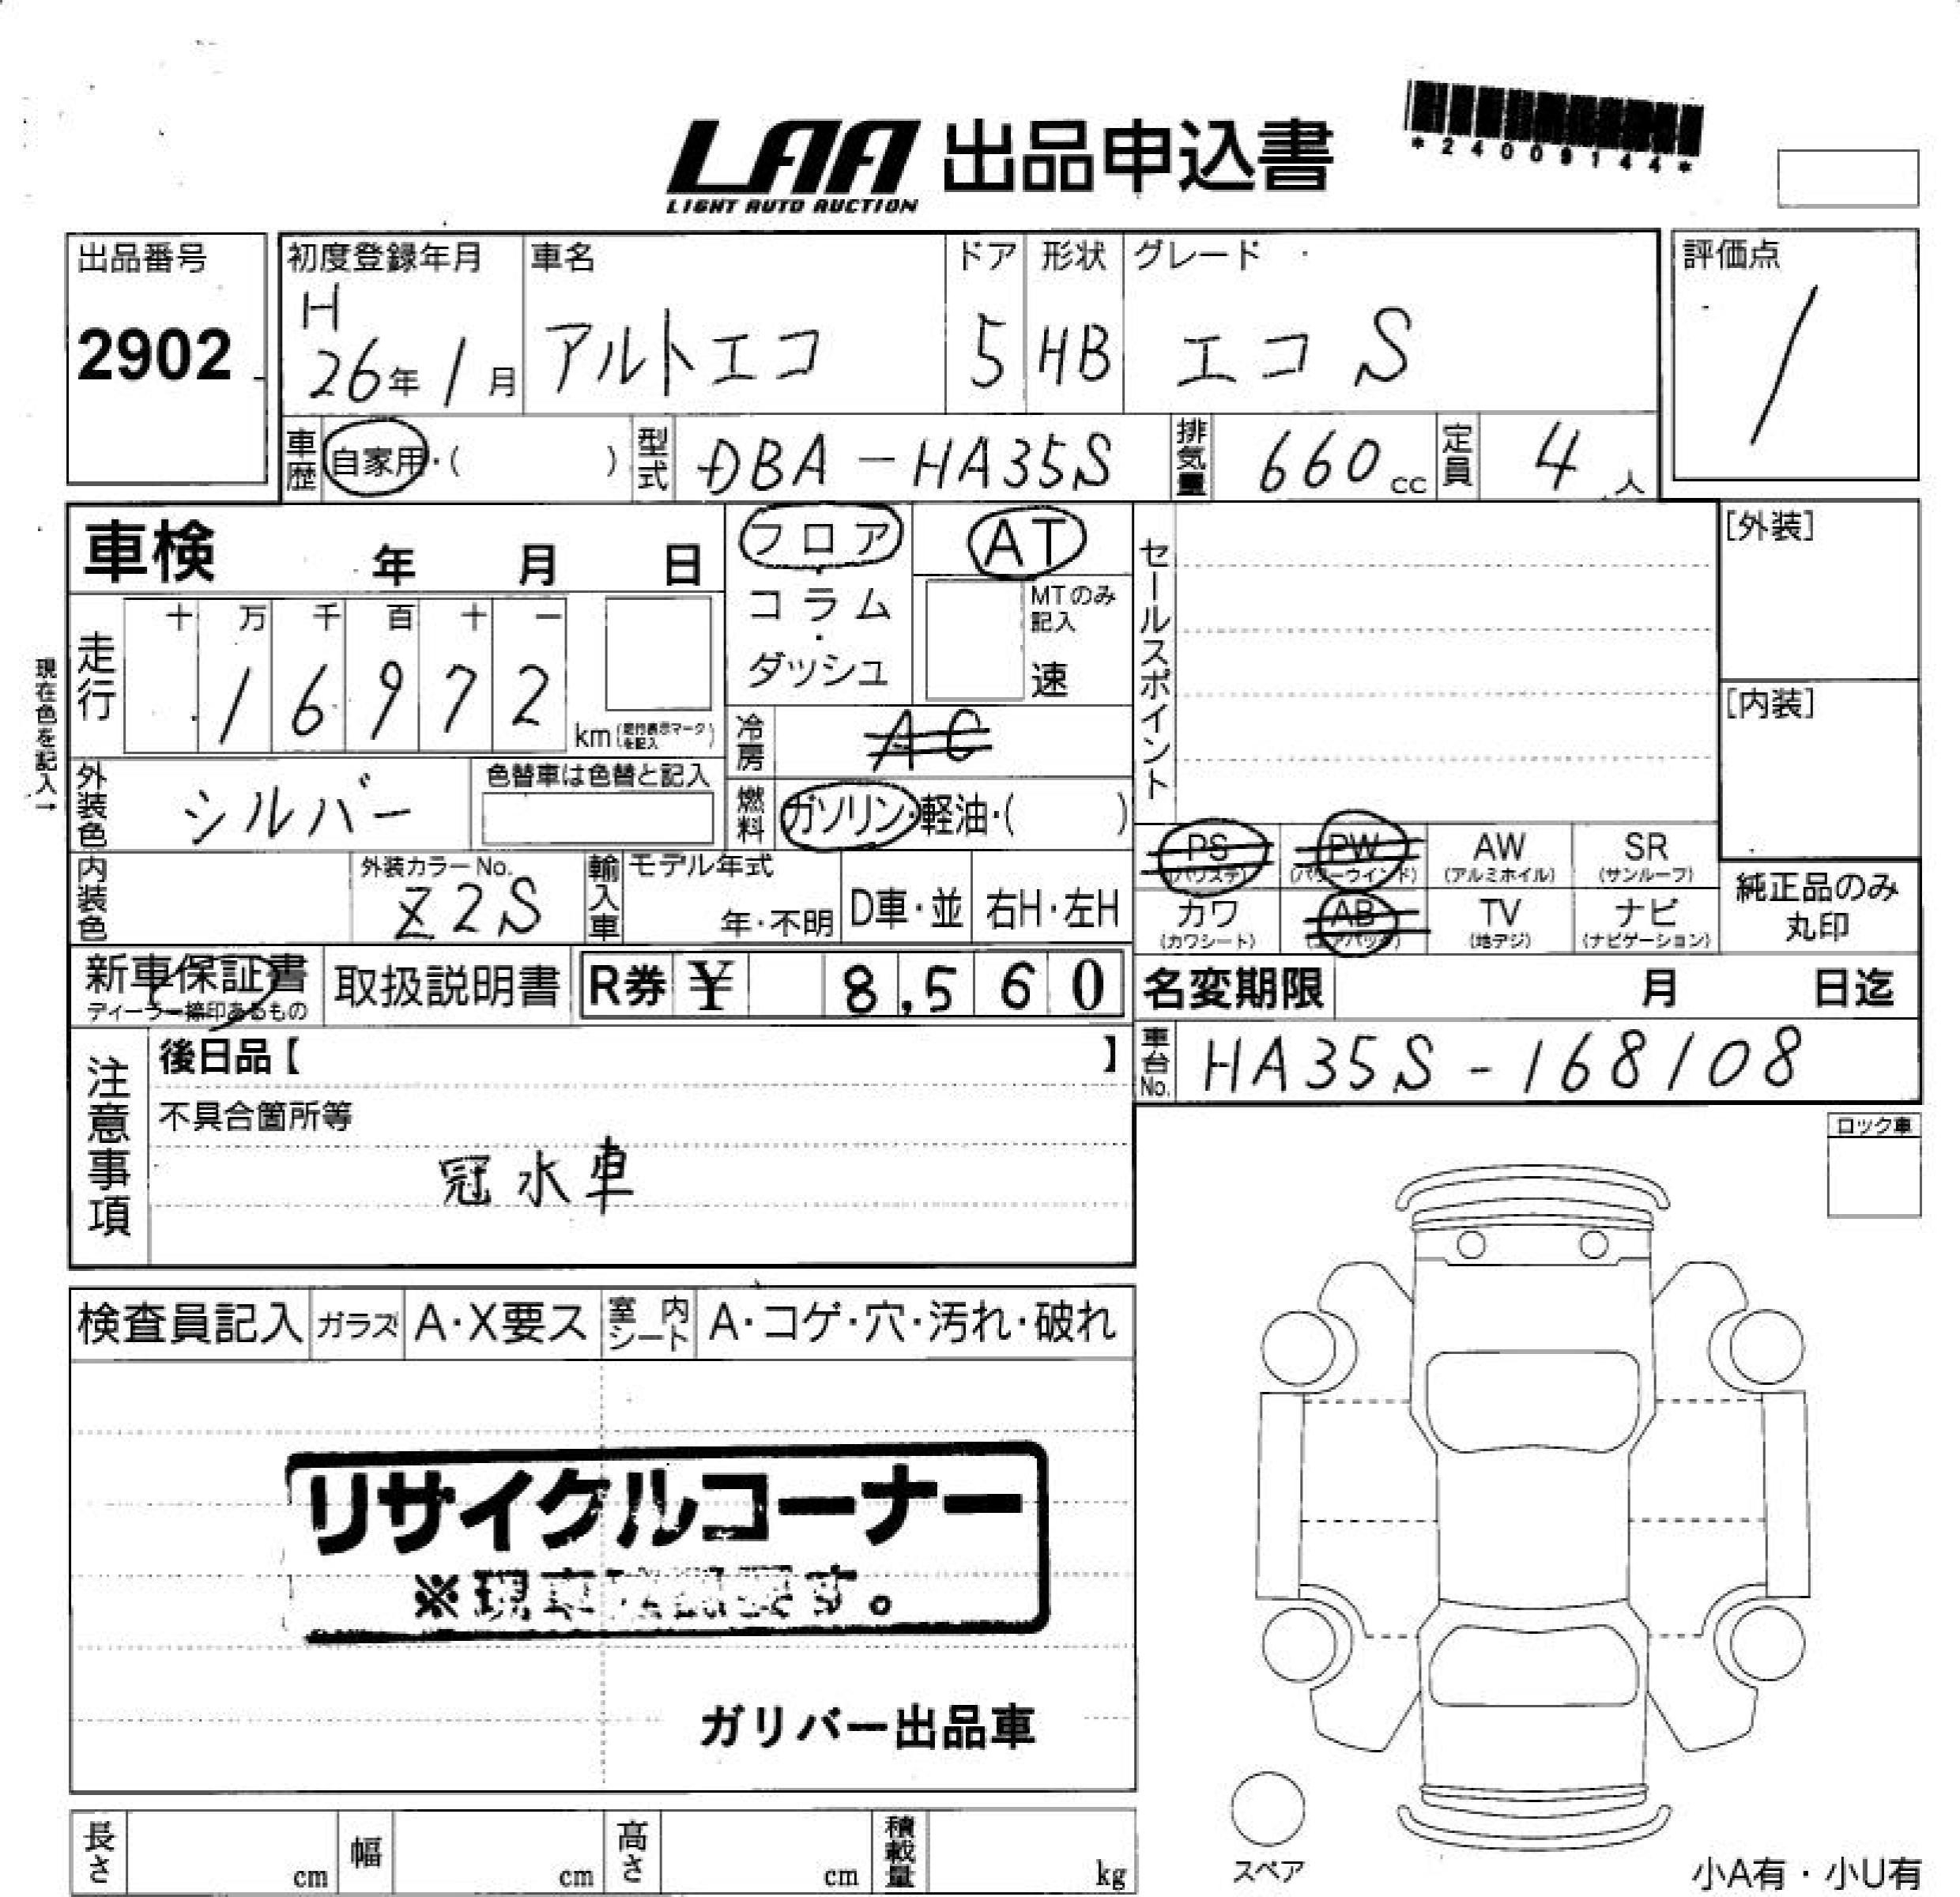 LAA 出品申込書
LIGHT AUTO AUCTION
*24009144*
出品番号
2902
初度登録年月
H
26年 1月
車名
アルトエコ
ドア
5
形状
HB
グレード
エコ S
評価点
/
車歴
自家用・( )
型式
DBA-HA35S
排気量
660 cc
定員
4 人
車検 年 月 日
フロア・コラム・ダッシュ
AT
MTのみ記入
速
セールスポイント
[外装]
[内装]
現在色を記入→
走行
十 万 千 百 十 一
1 6 9 7 2
km
冷房
AC
外装色
シルバー
色替車は色替と記入
燃料
ガソリン・軽油・( )
内装色
外装カラーNo.
Z2S
輸入車
モデル年式
年・不明
D車・並
右H・左H
PS
(パワステ)
PW
(パワーウインド)
AW
(アルミホイル)
SR
(サンルーフ)
カワ
(カワシート)
AB
(エアバック)
TV
(地デジ)
ナビ
(ナビゲーション)
純正品のみ
丸印
新車保証書
ディーラー捺印あるもの
取扱説明書
R券 ¥ 8,560
名変期限 月 日迄
車台No.
HA35S-168108
注意事項
後日品【 】
不具合箇所等
冠水車
ロック車
検査員記入
ガラス
A・X要ス
室内シート
A・コゲ・穴・汚れ・破れ
リサイクルコーナー
ガリバー出品車
長さ cm
幅 cm
高さ cm
積載量 kg
スペア
小A有・小U有